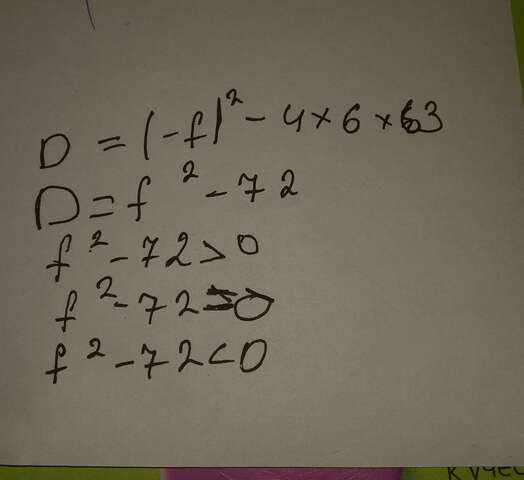 D = (-f)² - 4 × 6 × 3
D = f² - 72
f² - 72 > 0
f² - 72 = 0
f² - 72 < 0